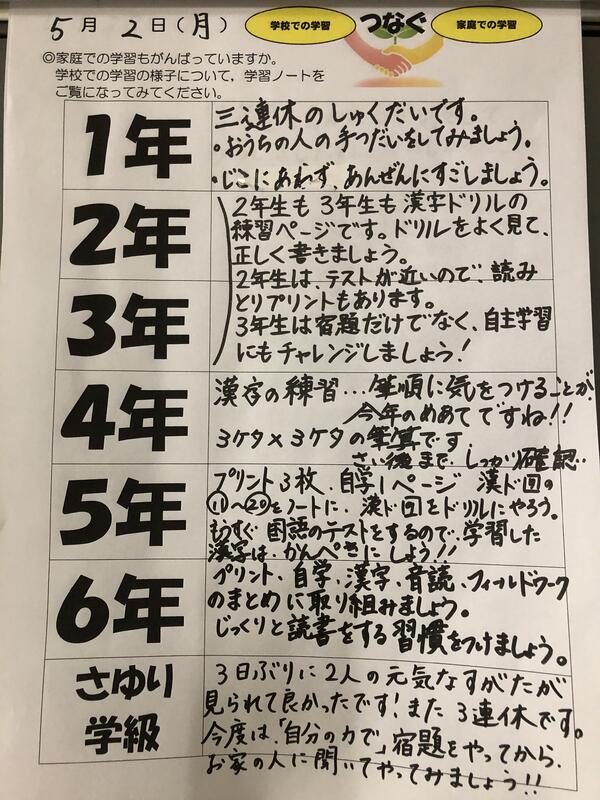 5月2日(月)
学校での学習 つなぐ 家庭での学習
◎家庭での学習もがんばっていますか。
学校での学習の様子について，学習ノートを
ご覧になってみてください。
1年
三連休のしゅくだいです。
・おうちの人の手つだいをしてみましょう。
・じこにあわず、あんぜんにすごしましょう。
2年
3年
2年生も3年生も漢字ドリルの
練習ページです。ドリルをよく見て、
正しく書きましょう。
2年生は、テストが近いので、読み
とりプリントもあります。
3年生は宿題だけでなく、自主学習
にもチャレンジしましょう!
4年
漢字の練習…筆順に気をつけることが
今年のめあてですね!!
3ケタ×3ケタの筆算です
さい後まで、しっかり確認..
5年
プリント3枚、自学1ページ 漢ド回の
⑪〜⑳をノートに、漢ド回をドリルにやろう。
もうすぐ国語のテストをするので、学習した
漢字は、かんぺきにしよう!!
6年
プリント、自学、漢字、音読、フィールドワーク
のまとめに取り組みましょう。
じっくりと読書をする習慣をつけましょう。
さゆり
学級
3日ぶりに2人の元気なすがたが
見られて良かったです!また3連休です。
今度は、「自分の力で」宿題をやってから、
お家の人に聞いてやってみましょう!!